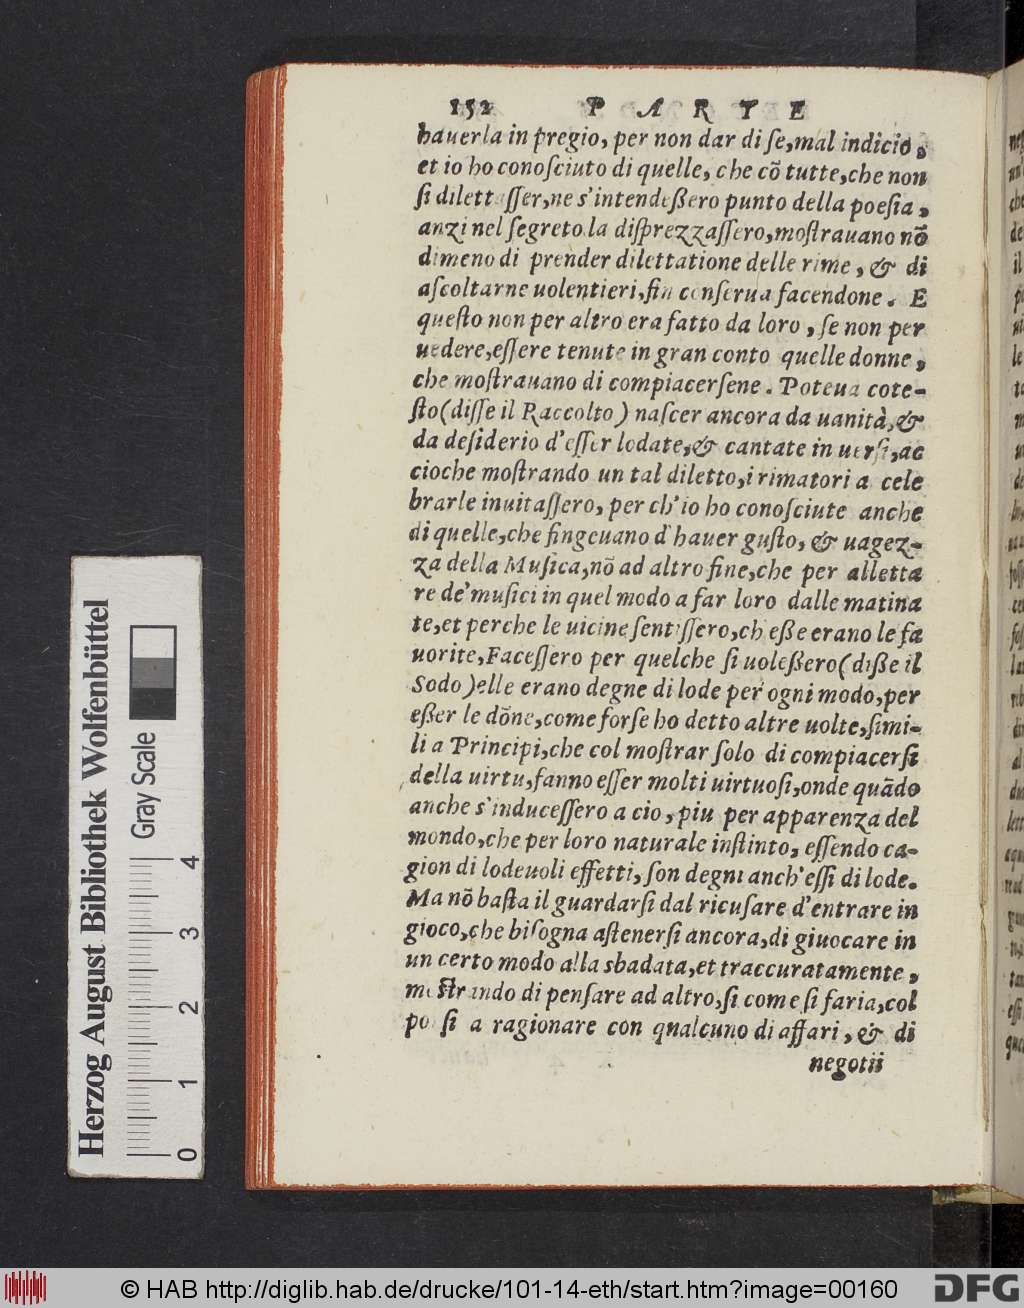 152 PARTE
hauerla in pregio, per non dar di se, mal indicio,
et io ho conosciuto di quelle, che cō tutte, che non
si dilettasser, ne s'intendeßero punto della poesia,
anzi nel segreto la disprezzassero, mostrauano nō
dimeno di prender dilettatione delle rime, & di
ascoltarne uolentieri, fin conserua facendone. E
questo non per altro era fatto da loro, se non per
uedere, essere tenute in gran conto quelle donne,
che mostrauano di compiacersene. Poteua cote-
sto (disse il Raccolto) nascer ancora da uanità, &
da desiderio d'esser lodate, & cantate in uersi, ac
cioche mostrando un tal diletto, i rimatori a cele
brarle inuitassero, per ch'io ho conosciute anche
di quelle, che fingeuano d'hauer gusto, & uagez-
za della Musica, nō ad altro fine, che per alletta
re de' musici in quel modo a far loro dalle matina
te, et perche le uicine sentissero, ch eße erano le fa
uorite, Facessero per quelche si uoleßero (diße il
Sodo) elle erano degne di lode per ogni modo, per
eßer le dōne, come forse ho detto altre uolte, simi-
li a Principi, che col mostrar solo di compiacersi
della uirtu, fanno esser molti uirtuosi, onde quādo
anche s'inducessero a cio, piu per apparenza del
mondo, che per loro naturale instinto, essendo ca-
gion di lodeuoli effetti, son degni anch'essi di lode.
Ma nō basta il guardarsi dal ricusare d'entrare in
gioco, che bisogna astenersi ancora, di giuocare in
un certo modo alla sbadata, et traccuratamente,
mostrando di pensare ad altro, si come si faria, col
porsi a ragionare con qualcuno di affari, & di
negotii
Herzog August Bibliothek Wolfenbüttel
Gray Scale
0 1 2 3 4
© HAB http://diglib.hab.de/drucke/101-14-eth/start.htm?image=00160
DFG